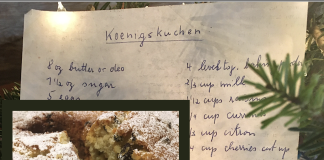 Koenigskuchen
8 oz butter or oleo
7 1/2 oz sugar
5 eggs
4 level tsp.
3/4 cup milk
1/2 cups
1/4 cup
1/3 cup citron
1/4 cup cherries cut up